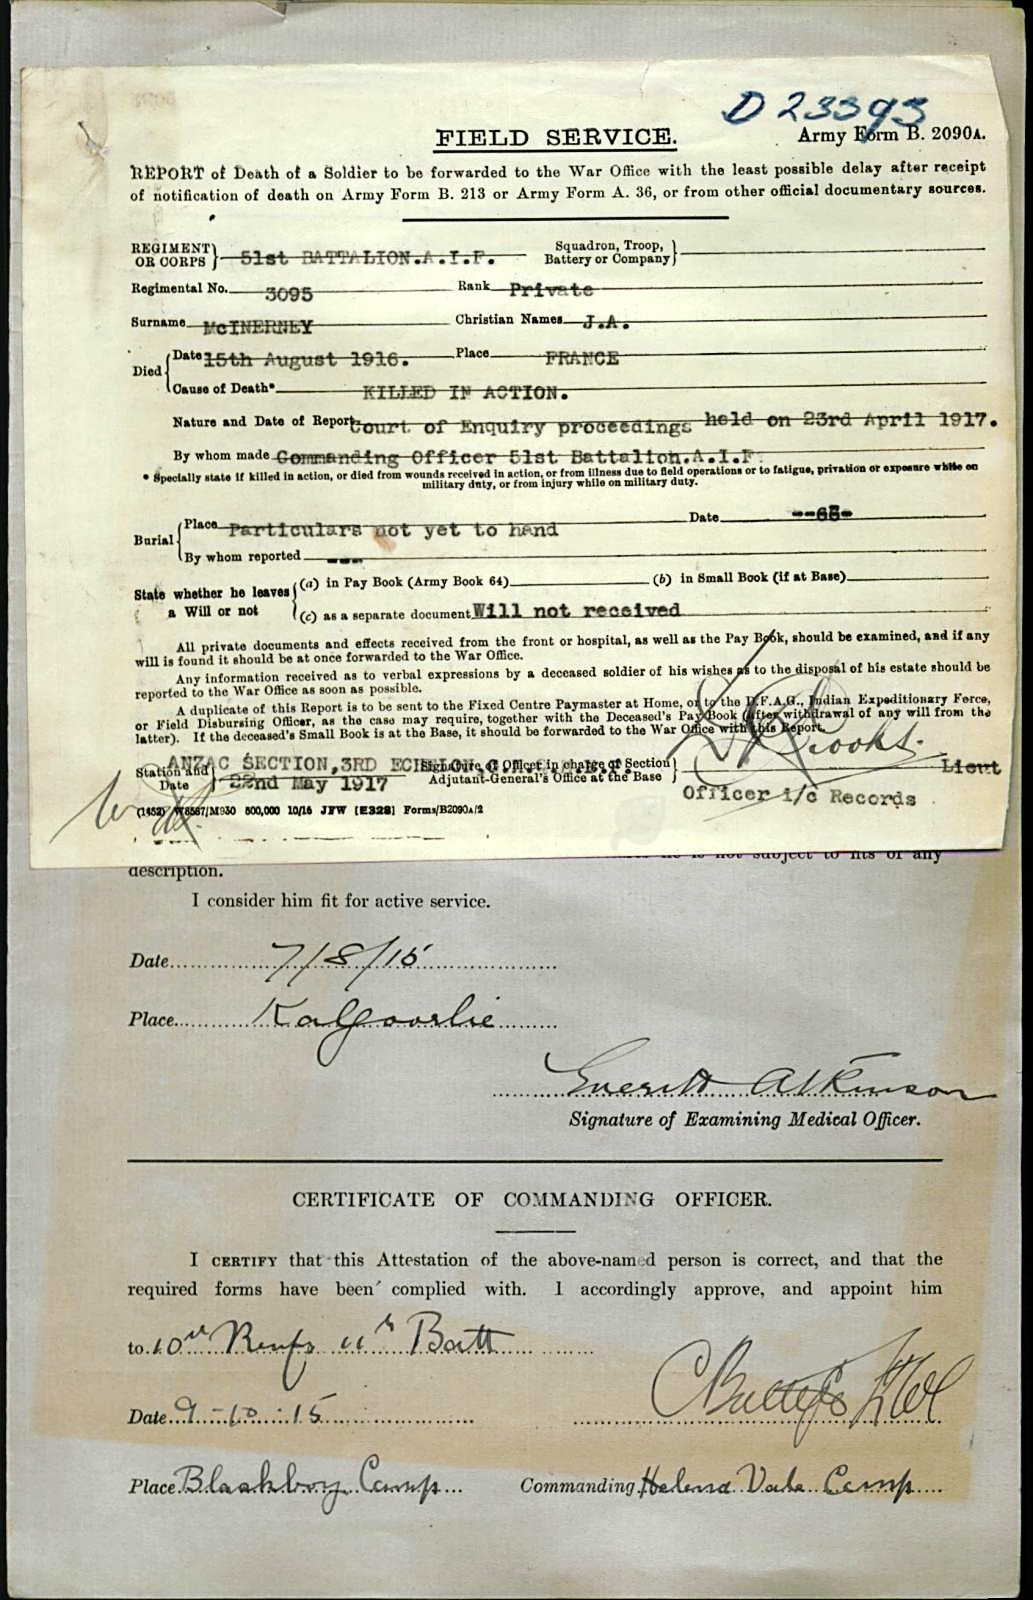 D 23393
FIELD SERVICE.
Army Form B. 2090A.
REPORT of Death of a Soldier to be forwarded to the War Office with the least possible delay after receipt
of notification of death on Army Form B. 213 or Army Form A. 36, or from other official documentary sources.
REGIMENT OR CORPS } 51st BATTALION.A.I.F. Squadron, Troop, Battery or Company }
Regimental No. 3095 Rank Private
Surname McINERNEY Christian Names J.A.
Died { Date 15th August 1916. Place FRANCE
Cause of Death* KILLED IN ACTION.
Nature and Date of Report Court of Enquiry proceedings held on 23rd April 1917.
By whom made Commanding Officer 51st Battalion.A.I.F.
* Specially state if killed in action, or died from wounds received in action, or from illness due to field operations or to fatigue, privation or exposure while on
military duty, or from injury while on military duty.
Burial { Place Particulars not yet to hand Date
By whom reported ---
State whether he leaves a Will or not { (a) in Pay Book (Army Book 64) (b) in Small Book (if at Base)
(c) as a separate document Will not received
All private documents and effects received from the front or hospital, as well as the Pay Book, should be examined, and if any
will is found it should be at once forwarded to the War Office.
Any information received as to verbal expressions by a deceased soldier of his wishes as to the disposal of his estate should be
reported to the War Office as soon as possible.
A duplicate of this Report is to be sent to the Fixed Centre Paymaster at Home, or to the D.F.A.G., Indian Expeditionary Force,
or Field Disbursing Officer, as the case may require, together with the Deceased's Pay Book (after withdrawal of any will from the
latter). If the deceased's Small Book is at the Base, it should be forwarded to the War Office with this Report.
ANZAC SECTION, 3RD ECHELON
Station and Date } 22nd May 1917 Signature of Officer in charge of Section Adjutant-General's Office at the Base } Lieut
Officer i/c Records
(1452) W8587/M930 500,000 10/16 JFW [E328] Forms/B2090A/2
he is not subject to fits of any
description.
I consider him fit for active service.
Date 7/8/15
Place Kalgoorlie
Everitt Atkinson
Signature of Examining Medical Officer.
CERTIFICATE OF COMMANDING OFFICER.
I CERTIFY that this Attestation of the above-named person is correct, and that the
required forms have been complied with. I accordingly approve, and appoint him
to 10th Reinfs 11th Batt
Date 9-10-15
Place Blackboy Camp Commanding Helena Vale Camp